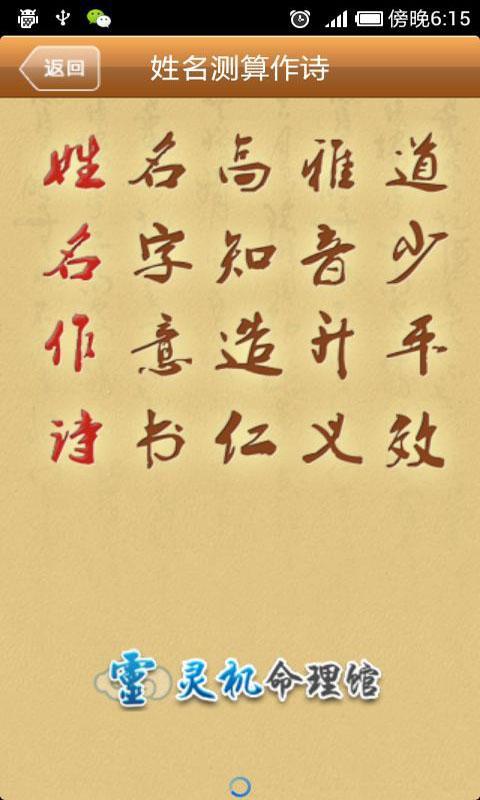 傍晚6:15
返回
姓名测算作诗
姓名高雅道
名字知音少
作意造升平
诗书仁义效
靈 灵机命理馆